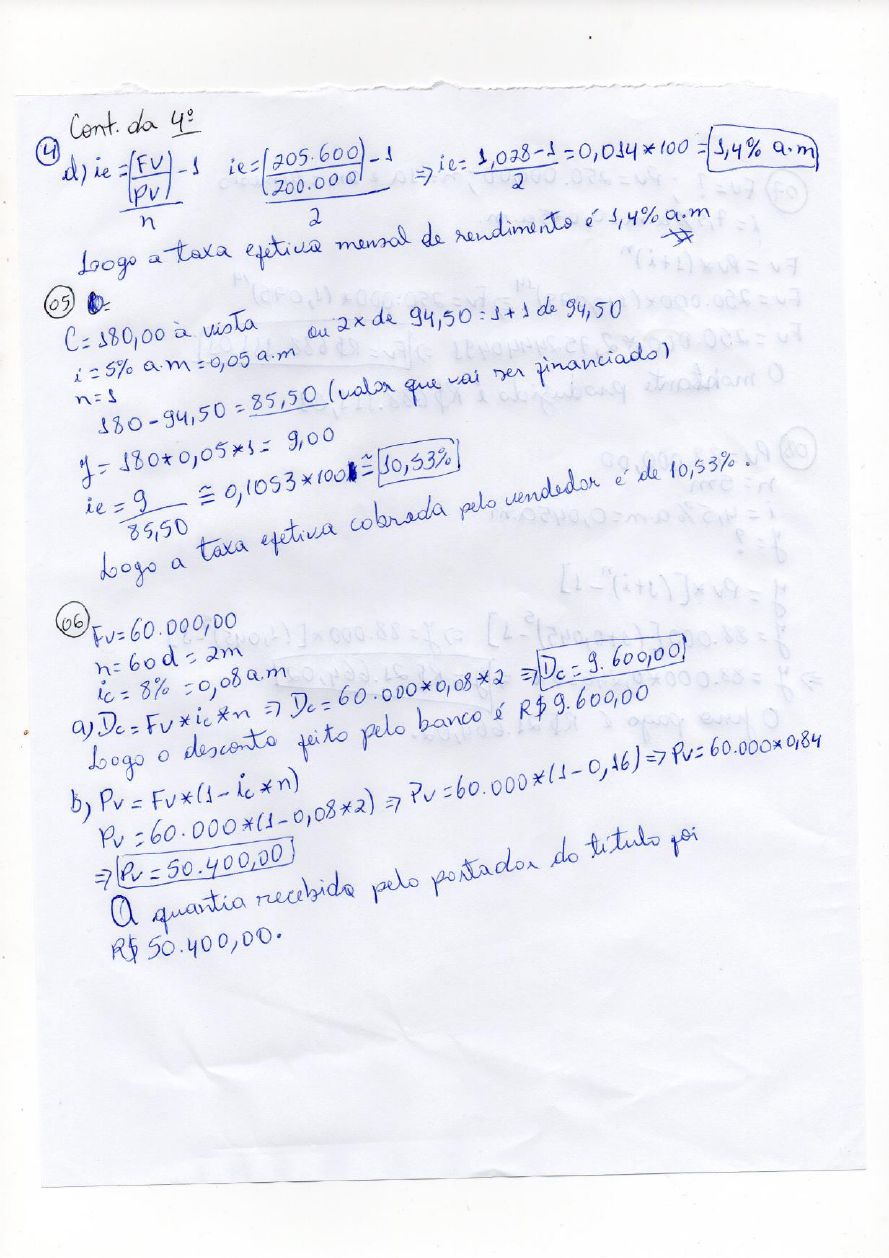 Cont. da 4º
4 d) ie = (FV/PV) - 1 / n ie = (205.600/200.000) - 1 / 2 => ie = 1,028 - 1 / 2 = 0,014 * 100 = 1,4% a.m
Logo a taxa efetiva mensal de rendimento é 1,4% a.m
05
C = 180,00 à vista ou 2x de 94,50 = 1+1 de 94,50
i = 5% a.m = 0,05 a.m
n = 1
180 - 94,50 = 85,50 (valor que vai ser financiado)
J = 180 * 0,05 * 1 = 9,00
ie = 9 / 85,50 ≅ 0,1053 * 100 ≅ 10,53%
Logo a taxa efetiva cobrada pelo vendedor é de 10,53%.
06
Fv = 60.000,00
n = 60 d = 2m
ic = 8% = 0,08 a.m
a) Dc = Fv * ic * n => Dc = 60.000 * 0,08 * 2 => Dc = 9.600,00
Logo o desconto feito pelo banco é R$ 9.600,00
b) Pv = Fv * (1 - ic * n)
Pv = 60.000 * (1 - 0,08 * 2) => Pv = 60.000 * (1 - 0,16) => Pv = 60.000 * 0,84
=> Pv = 50.400,00
A quantia recebida pelo portador do título foi
R$ 50.400,00.